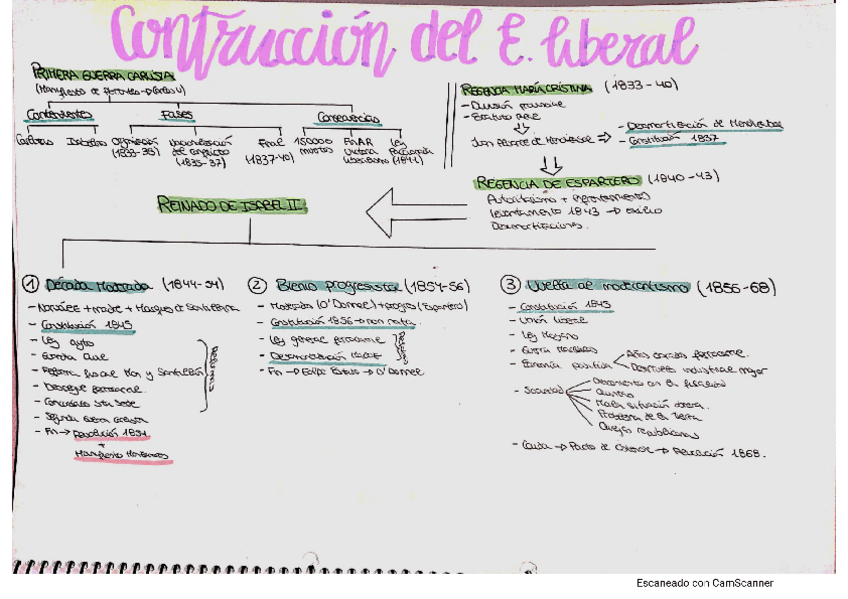 Contrucción del E. liberal
PRIMERA GUERRA CARLISTA
(Manifiesto de Carlos V)
Contendientes
Fases
Consecuencias
Carlistas
Isabelinos
Organización
(1833-35)
del conflicto
(1835-37)
Final
(1837-40)
150000
muertos
FinAR
Victoria
liberalismo
Ley
(1841)
REGENCIA MARÍA CRISTINA (1833-40)
- División provincial
- Estatuto Real
Juan Álvarez de Mendizábal ⇒
- Desamortización de Mendizábal
- Constitución 1837
REGENCIA DE ESPARTERO (1840-43)
Autoritarismo +
Levantamiento 1843 → exilio
Desamortizaciones.
REINADO DE ISABEL II
① Década Moderada (1844-54)
- Narváez + madre + Marqués de
- Constitución 1845
- Ley ayto
- Guardia Civil
- Reforma fiscal Mon y Santillán
- Despegue ferrocarril.
- Concordato Sta Sede
- Segunda Guerra Carlista
- Fin → Revolución 1854
+
Manifiesto Manzanares
② Bienio progresista (1854-56)
- Moderado (O'Donnel) + progres (Espartero)
- Constitución 1856 → non nata.
- Ley general ferrocarril
- Desamortización Madoz
- Fin → Golpe Estado → O'Donnel
③ Vuelta al moderantismo (1856-68)
- Constitución 1845
- Unión liberal
- Ley Moyano
- Guerra Marruecos
- Economía positiva
Años dorados ferrocarril.
Despegue industrial mayor
- Sociedad
Descontento con la fiscalidad
Quintas
Mala situación obrera.
Problema de la tierra
Quejas republicanas
- Caída → Pacto de Ostende → Revolución 1868.
Escaneado con CamScanner